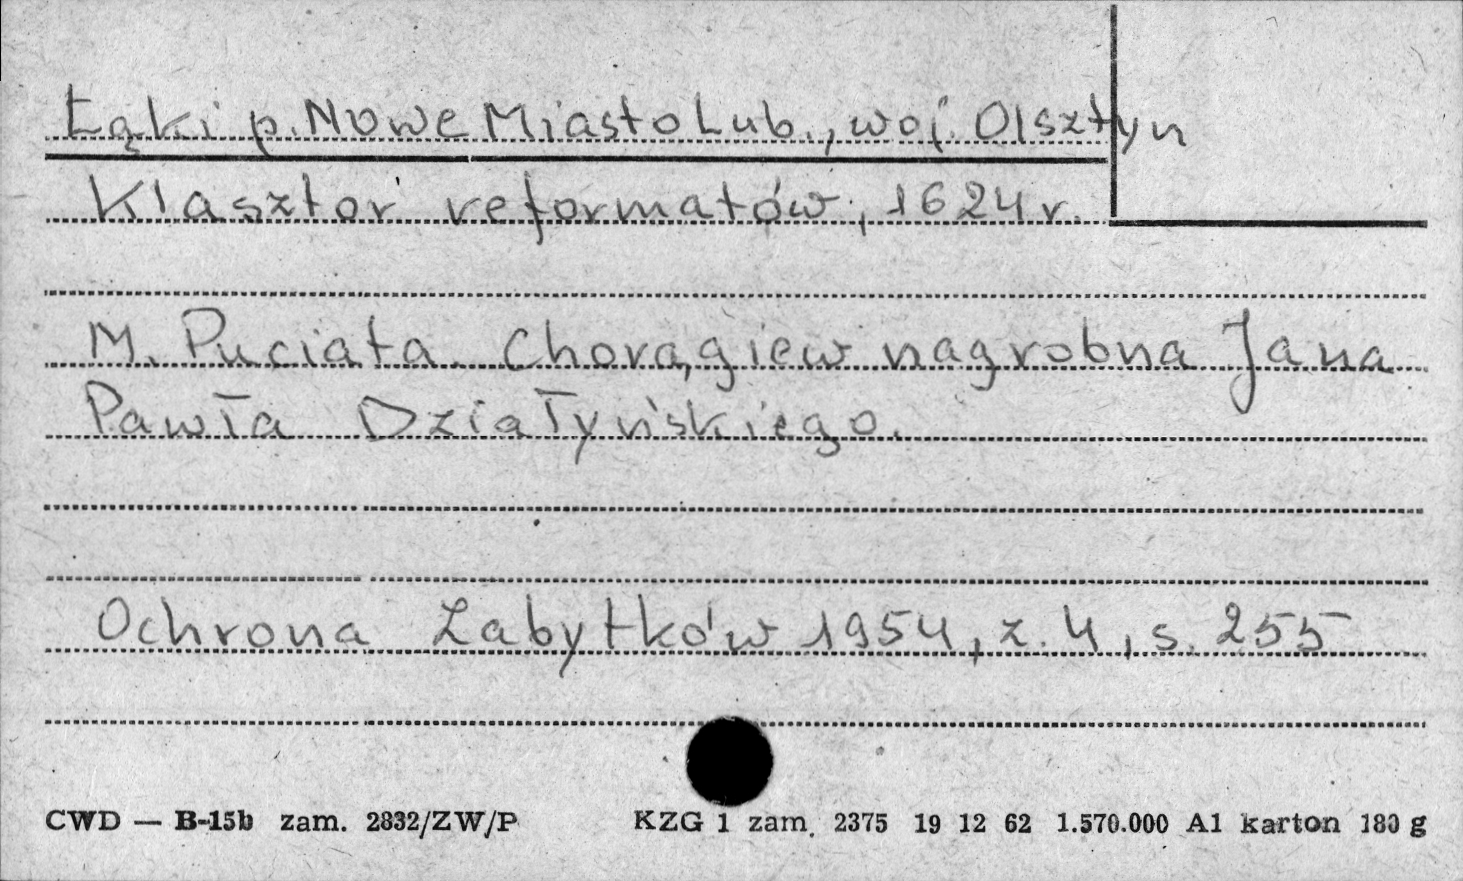 Łąki p. Nowe Miasto Lub., woj. Olsztyn
Klasztor reformatów, 1624 r.
M. Puciata. Chorągiew nagrobna Jana
Pawła Działyńskiego.
Ochrona Zabytków 1954, z. 4, s. 255
CWD — B-15b zam. 2832/ZW/P KZG 1 zam. 2375 19 12 62 1.570.000 A1 karton 180 g